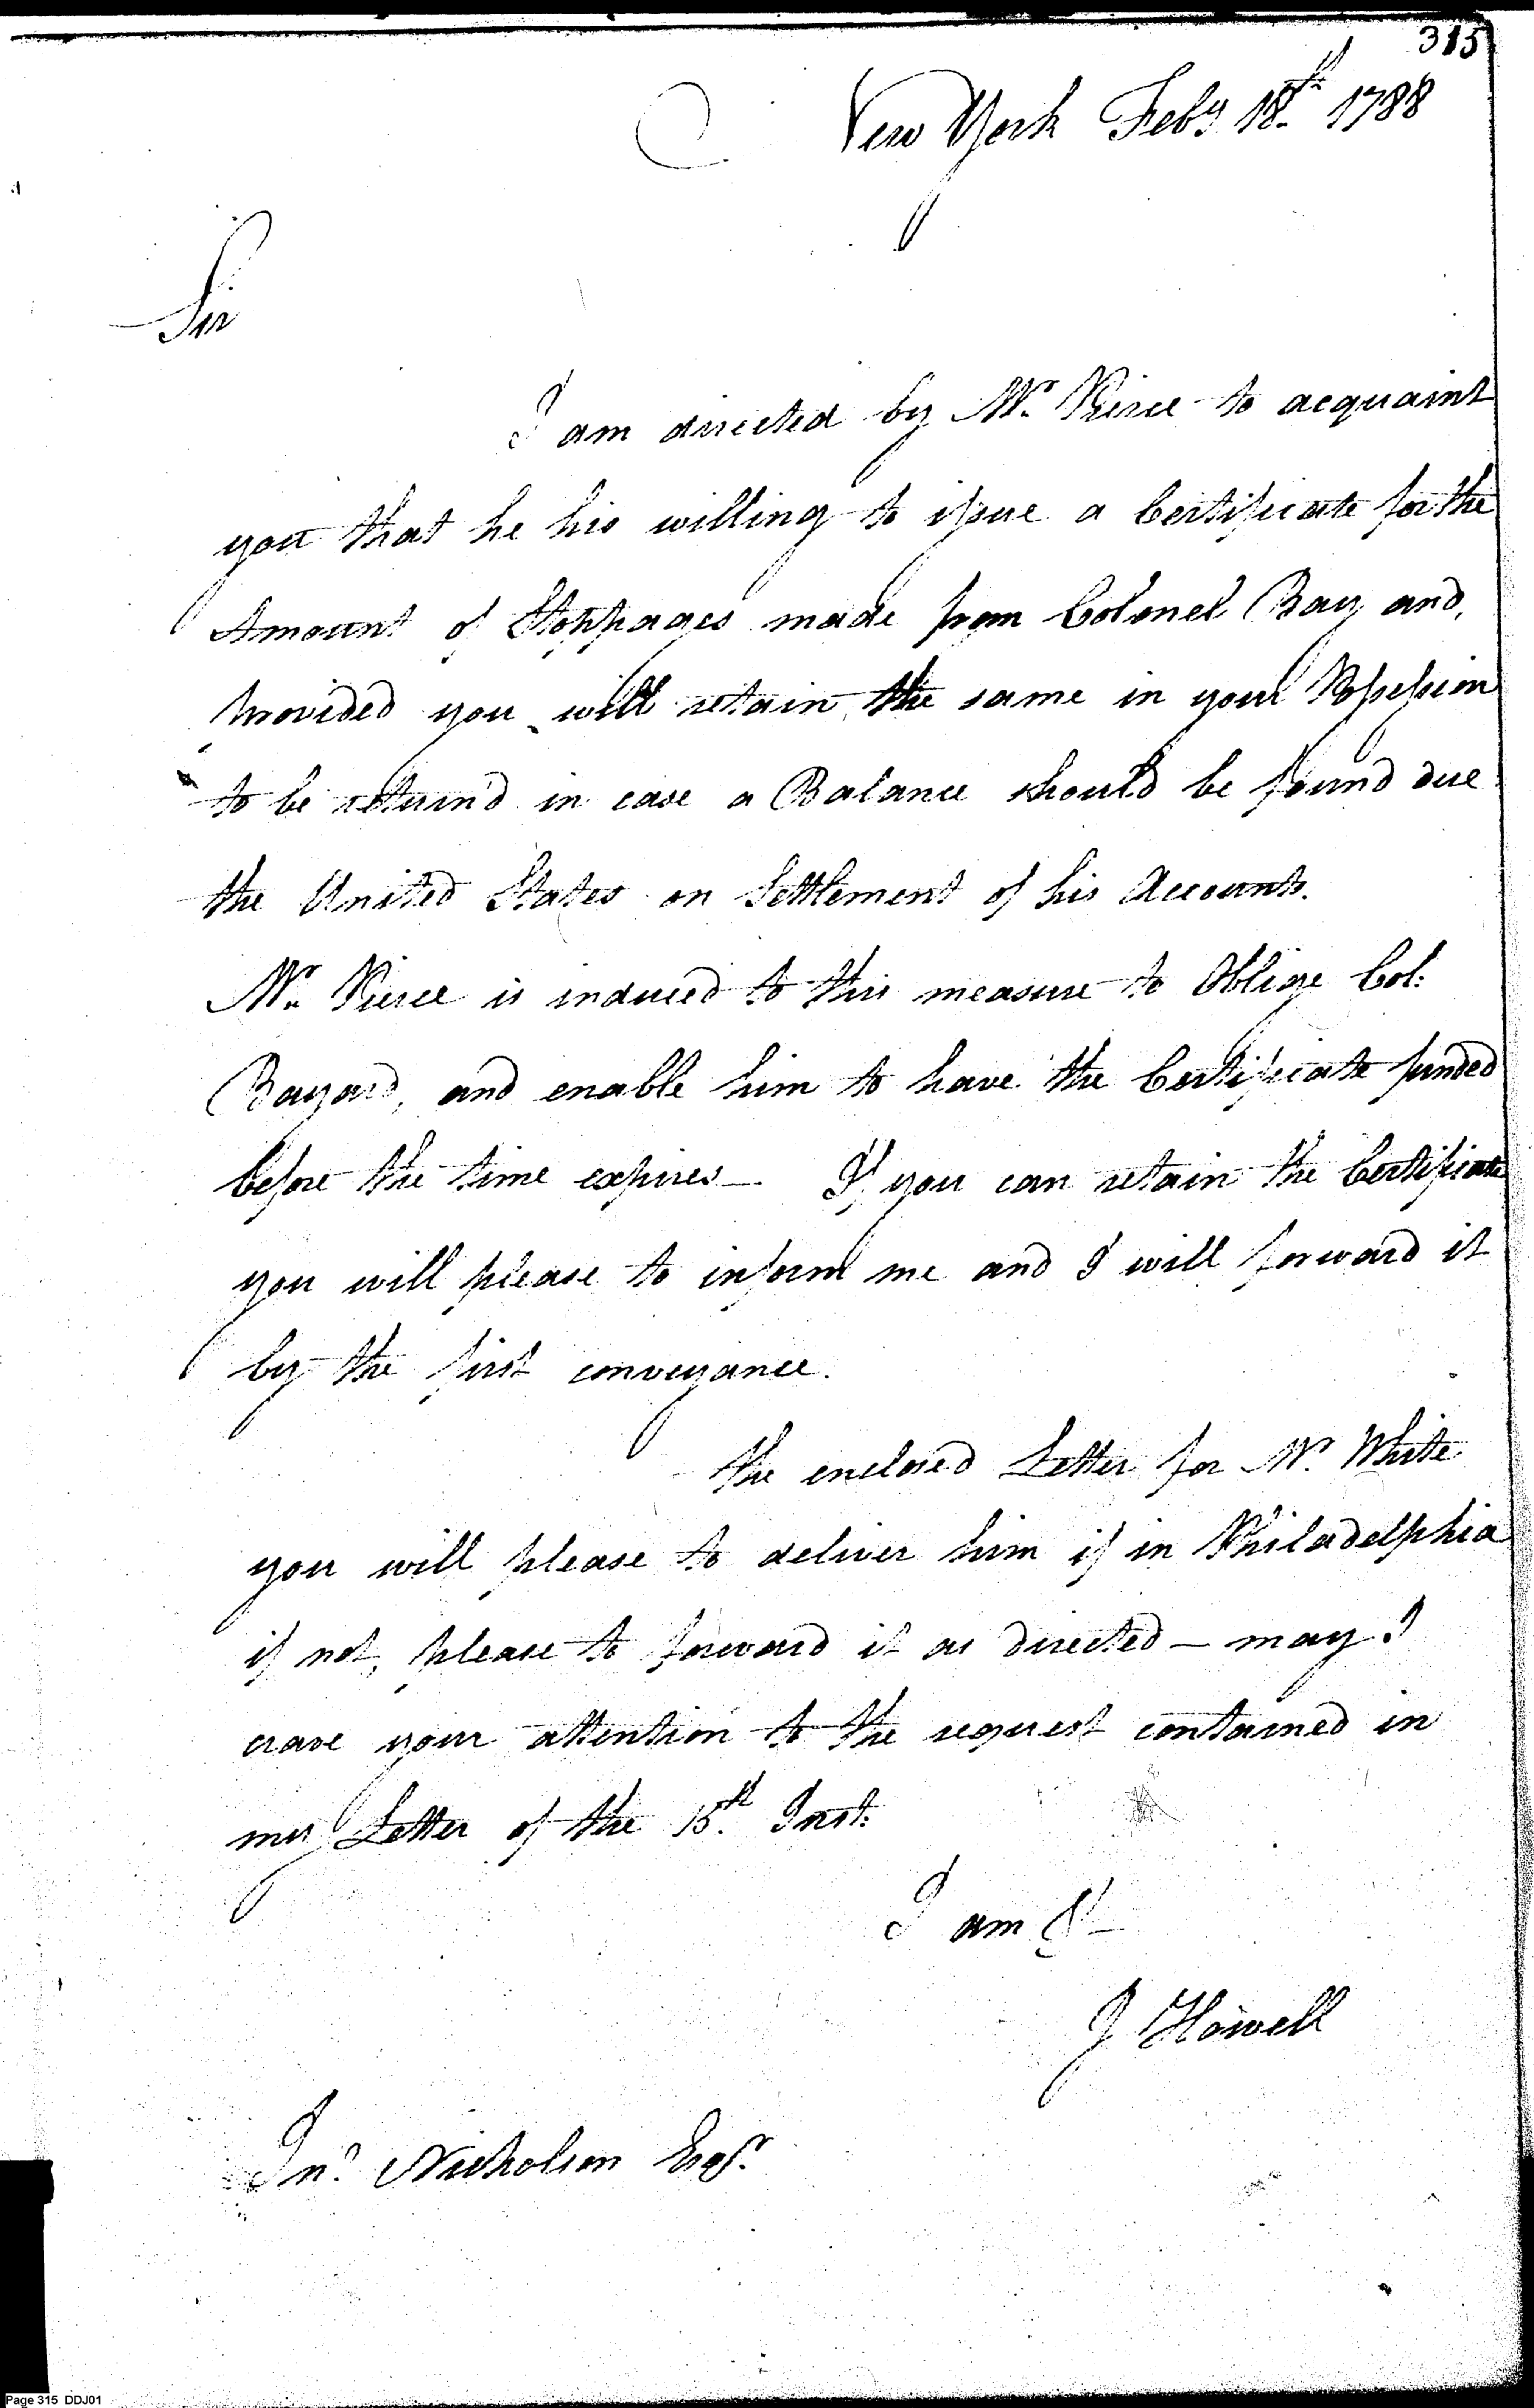 315
New York Feby 18th 1788
Sir
I am directed by Mr. Pierce to acquaint
you that he his willing to issue a Certificate for the
Amount of Stoppages made from Colonel Bay and,
provided you will retain the same in your Possession
to be return'd in case a Balance should be found due
the United States on Settlement of his Accounts.
Mr. Pierce is induced to this measure to Oblige Col:
Bayard, and enable him to have the Certificate funded
before the time expires — If you can retain the Certificate
you will please to inform me and I will forward it
by the first conveyance.
the enclosed Letter for Mr. White
you will please to deliver him if in Philadelphia
if not, please to forward it as directed — may I
crave your attention to the request contained in
my Letter of the 15th Inst:
I am &c
J Howell
Jno. Nicholson Esqr.
Page 315 DDJ01